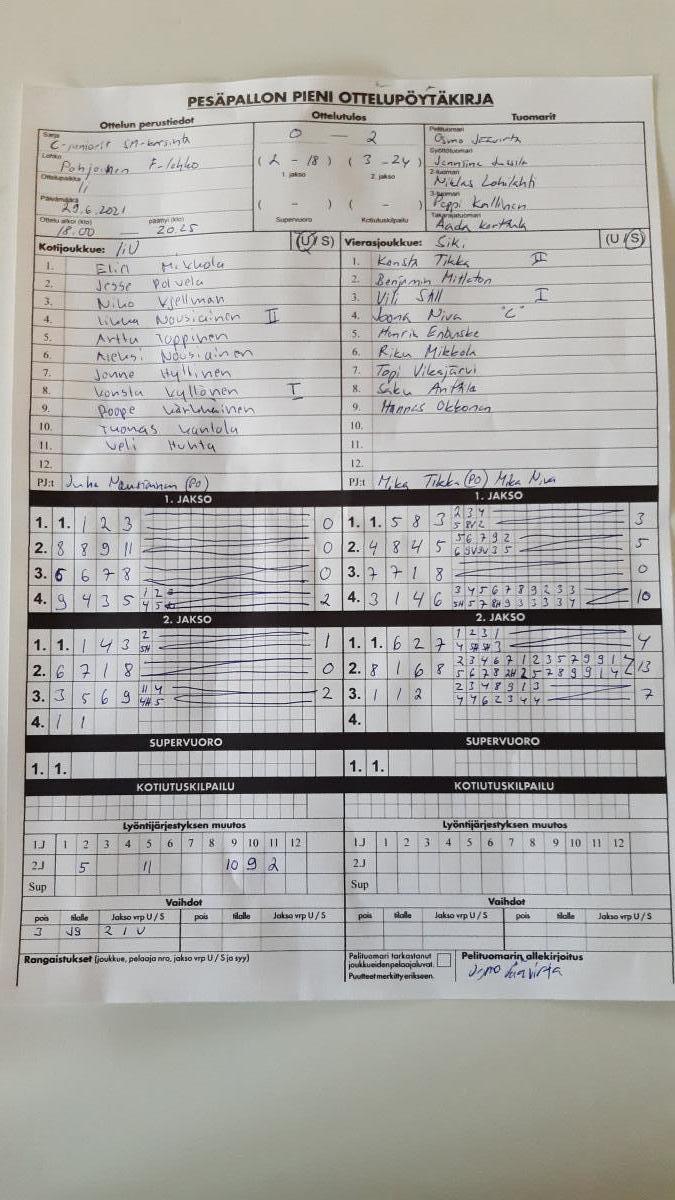 PESÄPALLON PIENI OTTELUPÖYTÄKIRJA
Ottelun perustiedot
Ottelutulos
Tuomarit
Sarja
C-juniorit SM-karsinta
0 — 2
Pelituomari
Osmo
Lohko
Pohjoinen F-lohko
(2 - 18) (3 - 24)
1. jakso 2. jakso
Syöttötuomari
Ottelupaikka
Ii
2-tuomari
Niklas Lohilahti
Päivämäärä
29.6.2021
( - ) ( - )
3-tuomari
Peppi Kallinen
Ottelu alkoi (klo) päättyi (klo)
18.00 — 20.25
Supervuoro Kotiutuskilpailu
Takarajatuomari
Aada
Kotijoukkue: IiU (U / S)
1. Elin Mikkola
2. Jesse Polvela
3. Niko Kjellman
4. Iikka Nousiainen II
5. Arttu Toppinen
6. Aleksi Nousiainen
7. Jonne Hyllinen
8. Konsta Kyllönen I
9. Roope Kärkkäinen
10. Tuomas Kantola
11. Veli Huhta
12.
PJ:t Juha (PO)
Vierasjoukkue: Siki (U / S)
1. Konsta Tikka II
2. Benjamin
3. Vili Säll I
4. Joona Niva "C"
5. Henrik Enbuske
6. Riku Mikkola
7. Topi Vikajärvi
8. Saku Anttila
9. Hannes Okkonen
10.
11.
12.
PJ:t Mika Tikka (PO) Mika Niva
1. JAKSO
1. 1. 1 2 3 0
2. 8 8 9 11 0
3. 6 6 7 8 0
4. 9 4 3 5 2
1. JAKSO
1. 1. 5 8 3 2 3 4 3
2. 4 8 4 5 5 6 7 9 2 5
3. 7 7 1 8 0
4. 3 1 4 6 3 4 5 6 7 8 9 2 3 3 10
2. JAKSO
1. 1. 1 4 3 2 1
5H
2. 6 7 1 8 0
3. 3 5 6 9 11 4 2
4H 5
4. 1 1
2. JAKSO
1. 1. 6 2 7 1 2 3 1 4
4 5H 5H 3
2. 8 1 6 8 2 3 4 6 7 1 2 3 5 7 9 9 1 13
5 6 7 8 2H 2 5 7 8 9 9 1 4
3. 1 1 2 2 3 4 8 9 1 3 7
4 4 6 2 3 4 4
4.
SUPERVUORO
1. 1.
SUPERVUORO
1. 1.
KOTIUTUSKILPAILU
KOTIUTUSKILPAILU
Lyöntijärjestyksen muutos
1.J 1 2 3 4 5 6 7 8 9 10 11 12
2.J 5 11 10 9 2
Sup
Lyöntijärjestyksen muutos
1.J 1 2 3 4 5 6 7 8 9 10 11 12
2.J
Sup
Vaihdot
pois tilalle Jakso vrp U / S pois tilalle Jakso vrp U / S
3 J9 2 1 U
Vaihdot
pois tilalle Jakso vrp U / S pois tilalle Jakso vrp U / S
Rangaistukset (joukkue, pelaaja nro, jakso vrp U / S ja syy)
Pelituomari tarkastanut
joukkueiden pelaajaluvat.
Puutteet merkitty erikseen.
Pelituomarin allekirjoitus
Osmo